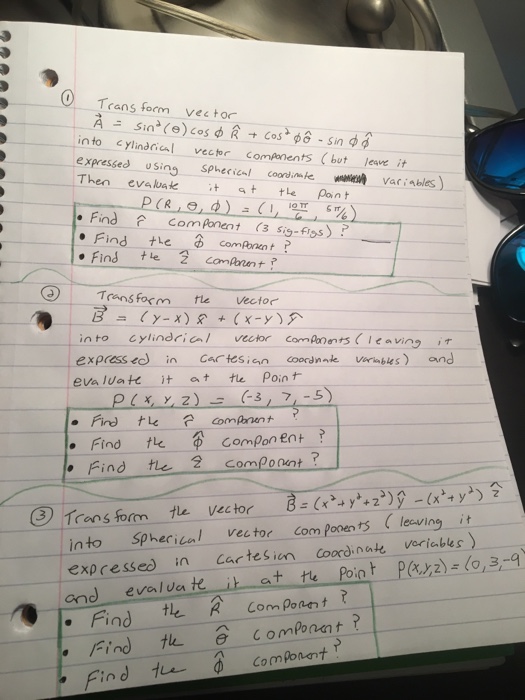 ① Transform vector
A⃗ = sin²(θ) cos ϕ R̂ + cos² ϕ θ̂ - sin ϕ ϕ̂
into cylindrical vector components (but leave it
expressed using spherical coordinate variables)
Then evaluate it at the point
P(R, θ, ϕ) = (1, 10π/6, 5π/6)
• Find r̂ component (3 sig-figs)?
• Find the ϕ̂ component?
• Find the ẑ component?
② Transform the vector
B⃗ = (y-x) x̂ + (x-y) ŷ
into cylindrical vector components (leaving it
expressed in cartesian coordnate variables) and
evaluate it at the point
P(x, y, z) = (-3, 7, -5)
• Find the r̂ component?
• Find the ϕ̂ component?
• Find the ẑ component?
③ Transform the vector B⃗ = (x²+y²+z²) ŷ - (x²+y²) ẑ
into spherical vector components (leaving it
expressed in cartesian coordinate variables)
and evaluate it at the point P(x,y,z) = (0,3,-9
• Find the R̂ component?
• Find the θ̂ component?
• Find the ϕ̂ component?